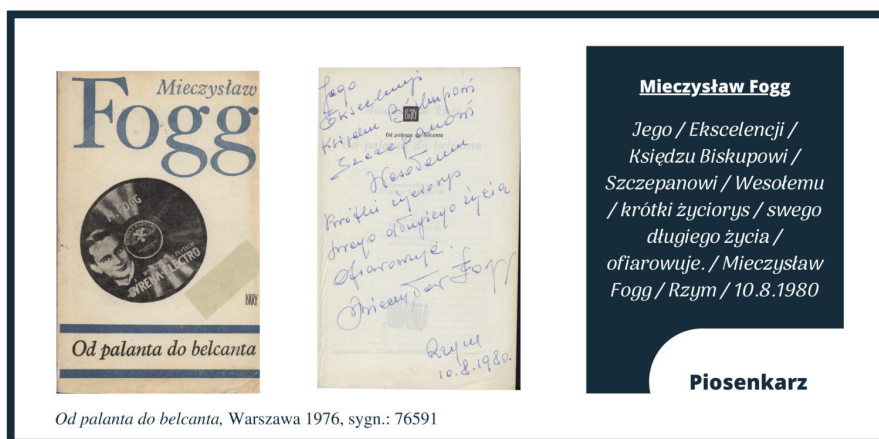 Mieczysław
Fogg
M. FOGG
SYRENA-ELECTRO
Od palanta do belcanta
Jego
Ekscelencji
Księdzu Biskupowi
Szczepanowi
Wesołemu
krótki życiorys
swego długiego życia
ofiarowuje.
Mieczysław Fogg
Rzym
10.8.1980.
Od palanta do belcanta
Mieczysław Fogg
Jego / Ekscelencji /
Księdzu Biskupowi /
Szczepanowi / Wesołemu
/ krótki życiorys / swego
długiego życia /
ofiarowuje. / Mieczysław
Fogg / Rzym / 10.8.1980
Piosenkarz
Od palanta do belcanta, Warszawa 1976, sygn.: 76591